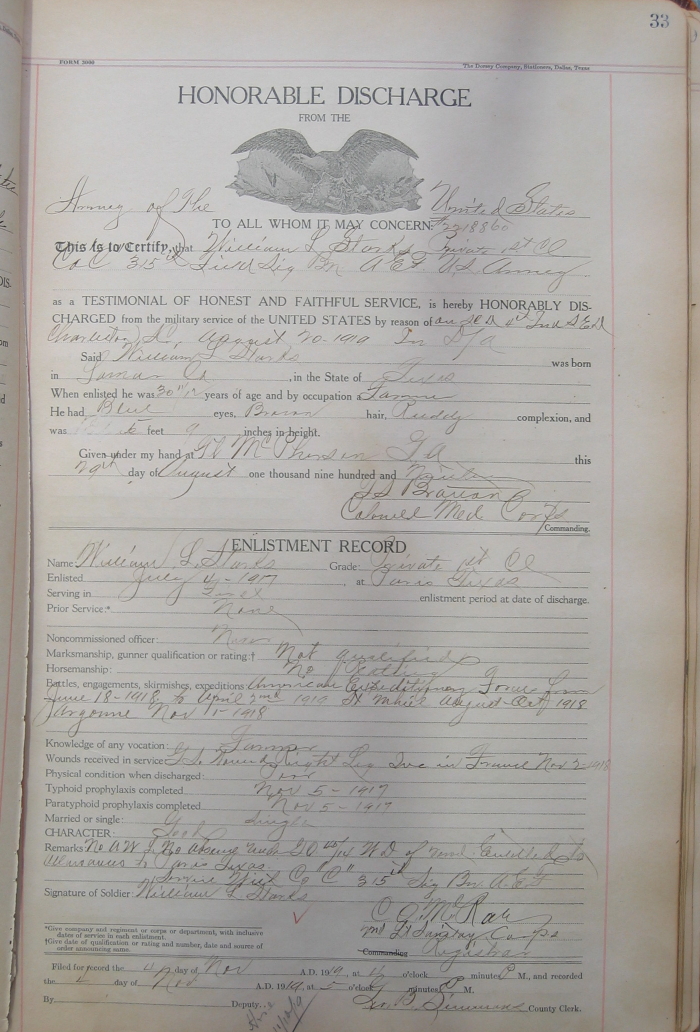 33
FORM 3000
The Dorsey Company, Stationers, Dallas, Texas
HONORABLE DISCHARGE
FROM THE
Army of The United States
TO ALL WHOM IT MAY CONCERN:
#2218860
This is to Certify, that William L Starks Private 1st Cl
Co C 315th Field Sig Bn A.E.F. U.S. Army
as a TESTIMONIAL OF HONEST AND FAITHFUL SERVICE, is hereby HONORABLY DIS-
CHARGED from the military service of the UNITED STATES by reason of on S.C.D. 4th Ind S.E.D
Charleston S.C., August 20-1919
Said William L Starks was born
in Lamar Co, in the State of Texas
When enlisted he was 30 years of age and by occupation a Farmer
He had Blue eyes, Brown hair, Ruddy complexion, and
was feet 9 inches in height.
Given under my hand at Ft McPherson Ga this
29th day of August one thousand nine hundred and Nineteen
Colonel Med. Corps
Commanding.
ENLISTMENT RECORD
Name: William L. Starks Grade: Private 1st Cl
Enlisted July 4-1917, at Paris Texas
Serving in First enlistment period at date of discharge.
Prior Service:* None
Noncommissioned officer: None
Marksmanship, gunner qualification or rating:† Not Qualified
Horsemanship: No Rating
Battles, engagements, skirmishes, expeditions American Expeditionary Force from
June 18-1918 to April 2nd 1919 St Mihiel August-Oct 1918
Argonne Nov 1-1918
Knowledge of any vocation: Farmer
Wounds received in service: G.S. Wound Right Leg Sve in France Nov 2-1918
Physical condition when discharged: Poor
Typhoid prophylaxis completed Nov 5-1917
Paratyphoid prophylaxis completed Nov 5-1917
Married or single: Single
CHARACTER: Good
Remarks No A.W.O.L No absence under G.O. 45/14 W.D. of Entitled to
allowances to Paris Texas.
Service With Co "C" 315th Sig Bn A.E.F
Signature of Soldier: William L Starks
C C McRae
1st Lt Sanitary Corps
Commanding Registrar
*Give company and regiment or corps or department, with inclusive
dates of service in each enlistment.
†Give date of qualification or rating and number, date and source of
order announcing same.
Filed for record the 4 day of Nov A.D. 1919, at 4 o'clock minutes P M., and recorded
the 4 day of Nov A.D. 1919, at 5 o'clock minutes P M.
By Deputy. B. Simmons County Clerk.